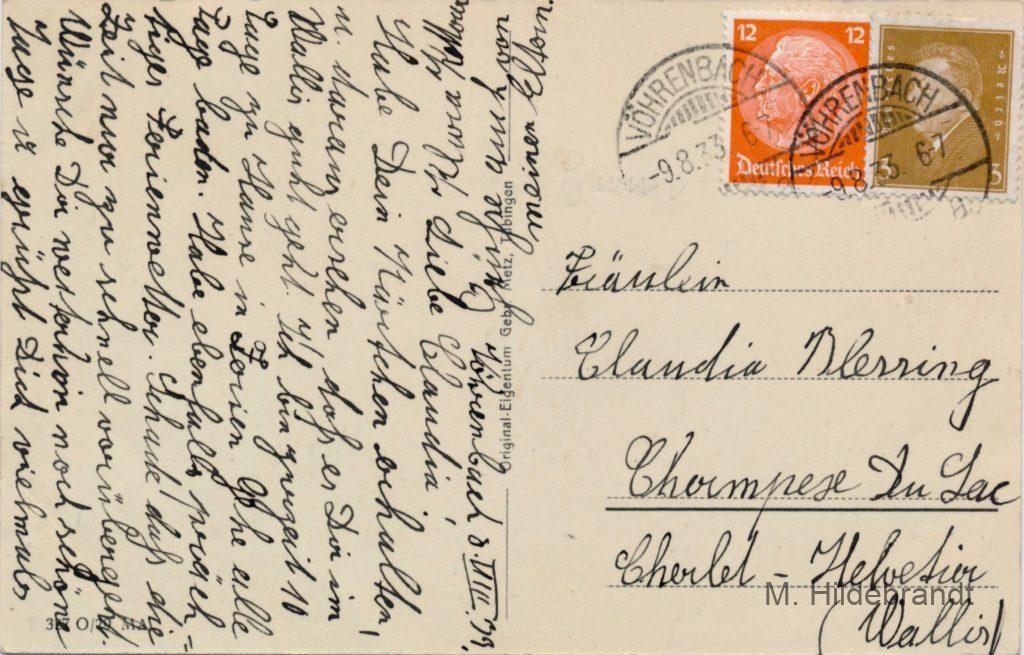 Vöhrenbach, 8. VIII. 33.
Liebe Claudia!
Habe Dein Kärtchen erhalten,
u. daraus ersehen daß es Dir im
Wallis gut geht. Ich bin zurzeit 10
Tage zu Hause in Ferien. Gehe alle
Tage baden. Habe ebenfalls präch=
tiges Ferienwetter. Schade daß die
Zeit nur zu schnell vorübergeht.
Wünsche Dir weiterhin noch schöne
Tage u. grüßt Dich vielmals
meinen Eltern.
Original-Eigentum Gebr. Metz, Tübingen
327 O/29 MA
12 12
Deutsches Reich
3 3
VÖHRENBACH
-9.8.33 6-7
VÖHRENBACH
-9.8.33 6-7
Fräulein
Claudia Blessing
Champexe Du Lac
Chalet - Helvetia
(Wallis)
M. Hildebrandt